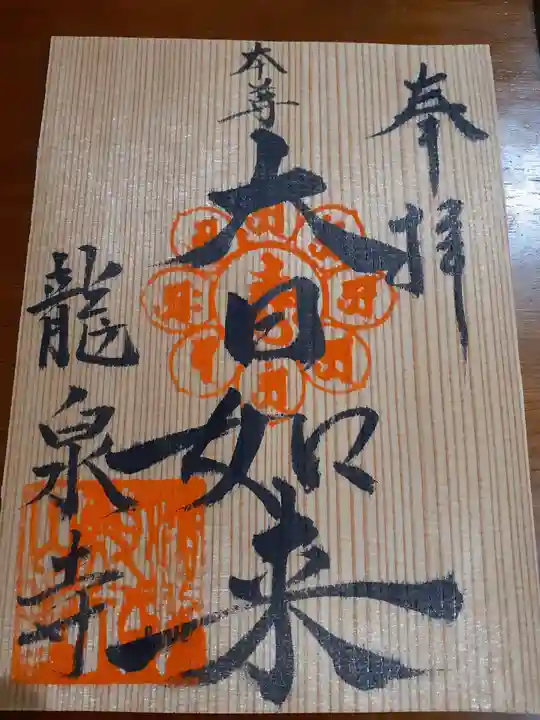 奉拝
本尊
大日如来
龍泉寺